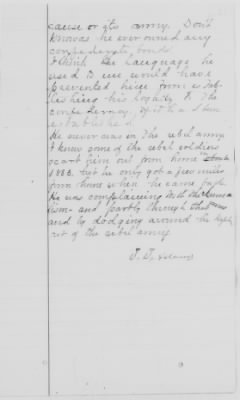 cause or its army. Don't
know as he ever owned any
confederate bonds.
I think the language he
used to me would have
prevented him from estab-
lishing his loyalty to the
confederacy
He never was in the rebel army
I know some of the rebel soldiers
him out from home
1863. but he only got a few miles
from home when he came back
He was complaining with the rheuma
tism and partly through that
and by dodging around he kept
out of the rebel army
J. J.